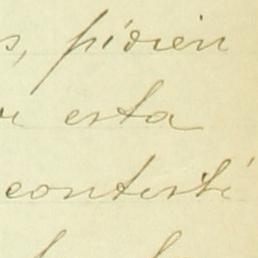 s, pidien
esta
contesté